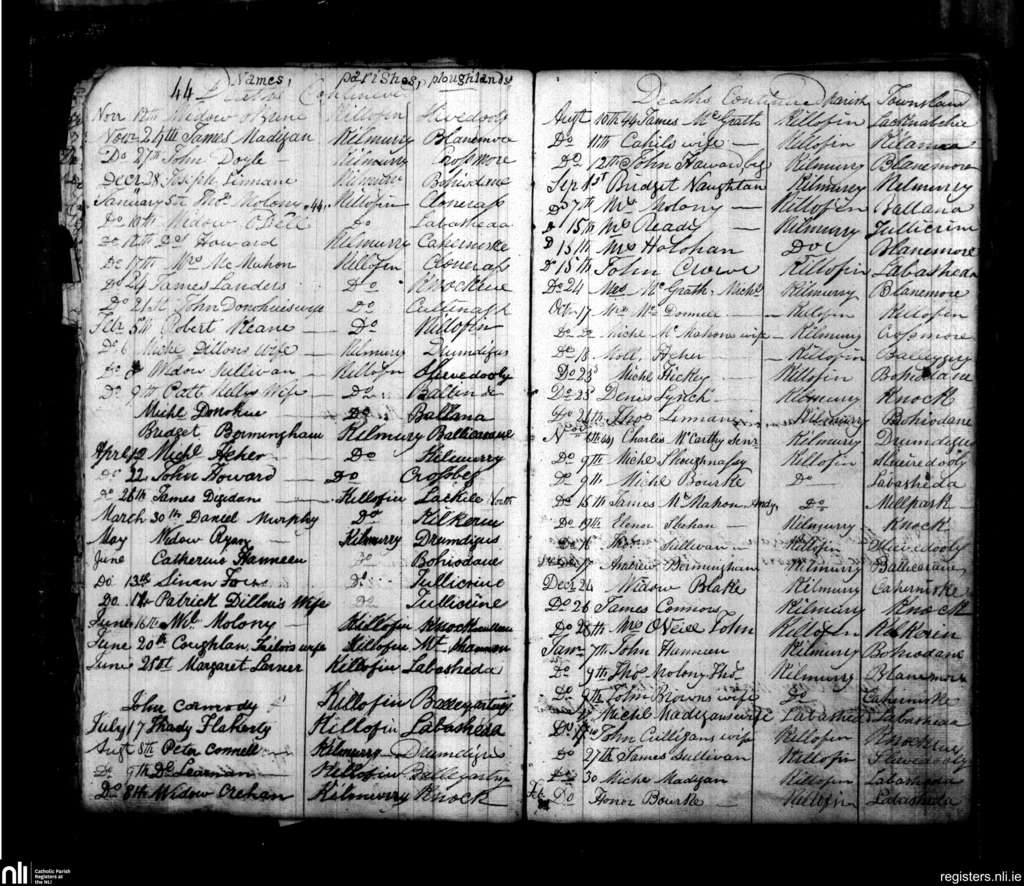 44 Names, parishes, ploughlands
Deaths Continued
Novr 18th Widow O'Brine Killofin Slivedooly
Novr 24th James Madigan Kilmurry Blanemore
Do 27th John Doyle — Kilmurry Crossmore
Decr 28 Joseph Linnane Kilmurry Bohiodane
January 5th Thos Molony 44 Killofin Cloneras
Do 10th Widow O'Dell Do Labasheda
Do 12th Howard Kilmurry Caherniske
Do 17th Mrs Mc Mahon Killofin Cloneras
Do 24 James Landers Do Knockerie
Do 21st John Donohues wife Do
Febr 5th Robert Keane — Do Killofin
Do 6 Michl Dillons Wife — Kilmurry Drumdigus
Do 8 Widow Sullivan — Killofin Slievedooly
Do 9th Patt Kellys Wife Do
Michl Donohue Do Ballana
Bridget Bermingham Kilmury
April 12 Michl Heher Do Kilmurry
Do 22 John Howard — Do Crossbeg
Do 26th James Digdan Killofin
March 30th Daniel Murphy Do Kilkerin
May Widow Ryan Kilmurry Drumdigus
June Catherine Hanneen Do Bohiodane
Do 13th Do Tullicrine
Do 17th Patrick Dillon's Wife Do Tullicrine
June 16th Molony Killofin
June 20th Coughlan Tailors wife Killofin Mt Shannon
June 25th Margaret Lerner Killofin Labasheda
John Cormody Killofin Ballyartney
July 17 Thady Flaherty Killofin Labasheda
Augt 5th Peter Connell — Kilmurry Drumdigus
Do 9th Do Learnan — Killofin Ballyartney
Do 8th Widow Crehan Kilmurry Knock
Deaths Continued Parish Townsland
Augt 10th 44 James McGrath Killofin
Do 11th Cahils wife — Killofin
Do 12th John Haward Kilmurry Blanemore
Sep 1st Bridget Naughtan Kilmurry Kilmurry
Do 7th Mrs Molony — Killofin Ballana
Do 15th Mrs Ready — Kilmurry Tullicrine
Do 15th Mrs Holohan Do Blanemore
Do 15th John Crowe Killofin Labasheda
Do 24 Mrs McGrath Michl Kilmurry Blanemore
Octr 17 Mrs — Killofin Killofin
Do Do Michl McMahons wife — Kilmury Crossmore
Do 18 Moll Heher — Killofin
Do 23 Michl Hickey — Killofin Bohiodane
Do 25 Denis Lynch Kilmurry Knock
Do 26th Thos Linnane Kilmurry Bohiodane
Novr Charles McCarthy Senr Kilmurry Drumdigus
Do 9th Michl Shoughnessy Killofin Slievedooly
Do 9th Michl Bourke Do Labasheda
Do 15th James McMahon Andy Do Millpark
Do 19th Elenor Shehan — Kilmurry Knock
Do 16 Thos Sullivan — Killofin Slievedooly
Andrew Bermingham Kilmurry
Decr 24 Widow Blake Kilmurry Caherniske
Do 26 James Connors Kilmurry Knock
Do 28th Mrs O'Neill John Killofin Kilkerin
Janr 7th John Hanneen Kilmurry Bohiodane
Do 9th Thos Molony Thos Kilmurry Blanemore
Do 9th John Browns wife Do Caherniske
Michl Madigans wife Labasheda Labasheda
Do 17th John Culligans wife Killofin Knockerie
Do 27th James Sullivan Killofin Slievedooly
Do 30 Michl Madigan Killofin Labasheda
Feb Do Honor Bourke — Killofin Labasheda
nli Catholic Parish Registers at the NLI
registers.nli.ie